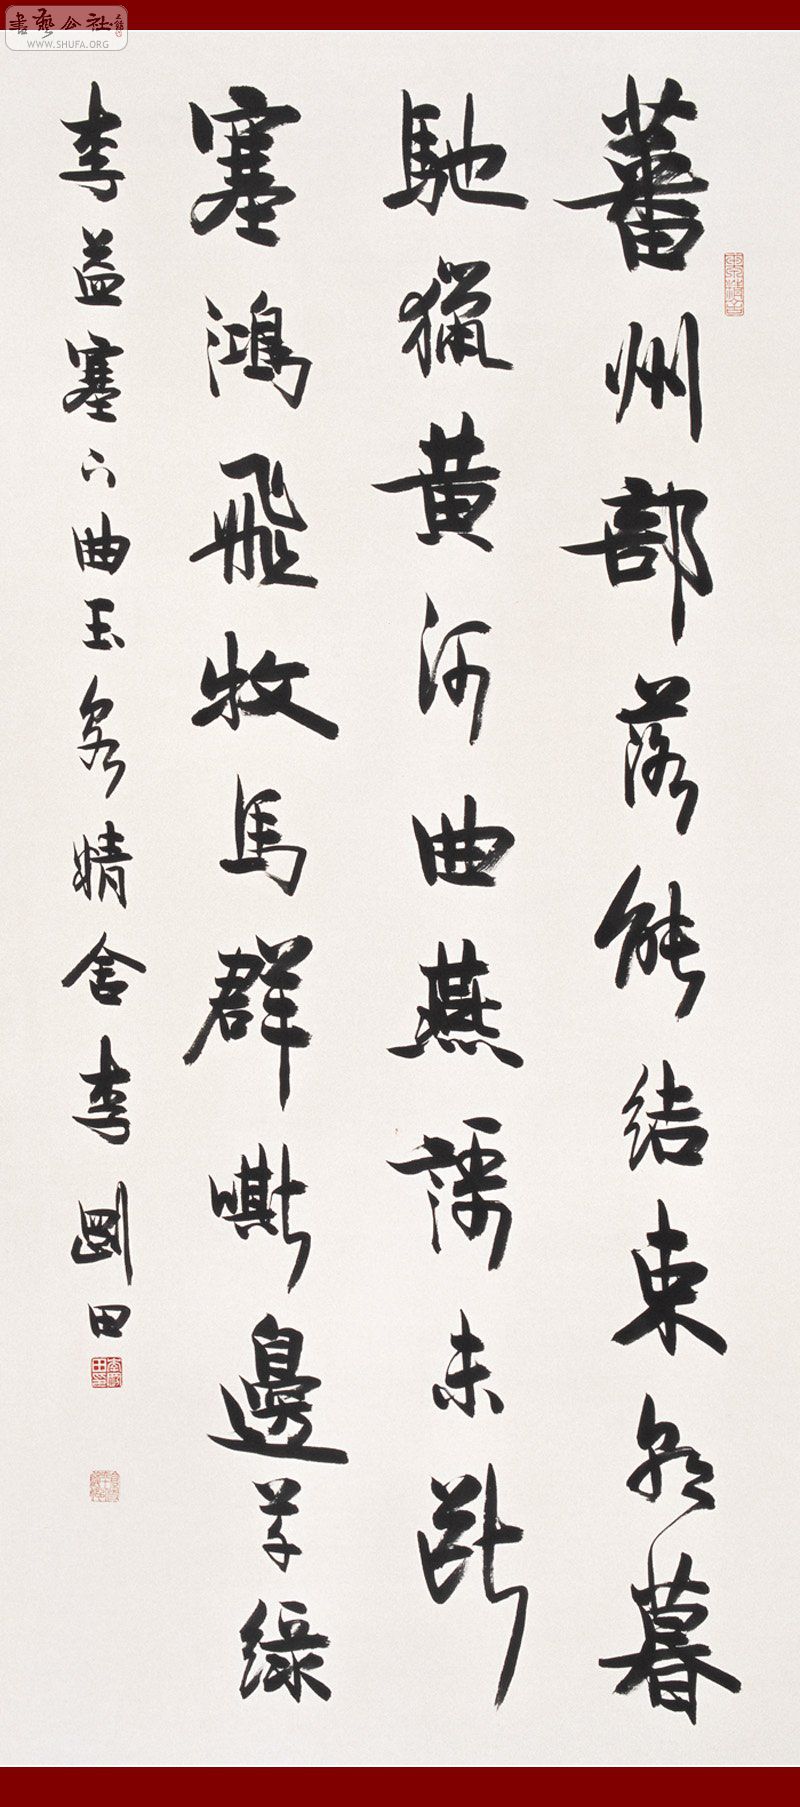 書藝公社
WWW.SHUFA.ORG
蕃州部落能結束朝暮
馳獵黄河曲燕謌未斷
塞鴻飛牧馬群嘶邊草綠
李益塞下曲玉精舍李剛田